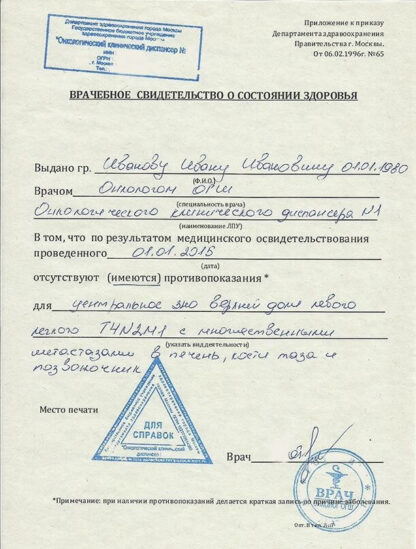 Департамент здравоохранения города Москвы
Государственное бюджетное учреждение
здравоохранения города Москвы
"Онкологический клинический диспансер №
ИНН
ОГРН
г. Москва
Тел.
Приложение к приказу
Департамента здравоохранения
Правительства г. Москвы.
От 06.02.1996г. №65
ВРАЧЕБНОЕ СВИДЕТЕЛЬСТВО О СОСТОЯНИИ ЗДОРОВЬЯ
Выдано гр. Иванову Ивану Ивановичу 01.01.1980
(Ф.И.О.)
Врачом Онкологом ОГШ
(специальность врача)
Онкологического клинического диспансера N1
(наименование ЛПУ)
В том, что по результатом медицинского освидетельствования
проведенного 01.01.2015
(дата)
отсутствуют (имеются) противопоказания *
для центральное зно верхней доли левого
легкого T4N2M1 с множественными
(указать вид деятельности)
метастазами в печень, кости таза и
позвоночник
Место печати
ДЛЯ
СПРАВОК
ОНКОЛОГИЧЕСКИЙ КЛИНИЧЕСКИЙ
ДИСПАНСЕР
Врач
ВРАЧ
ОГШ
*Примечание: при наличии противопоказаний делается краткая запись по причине заболевания.